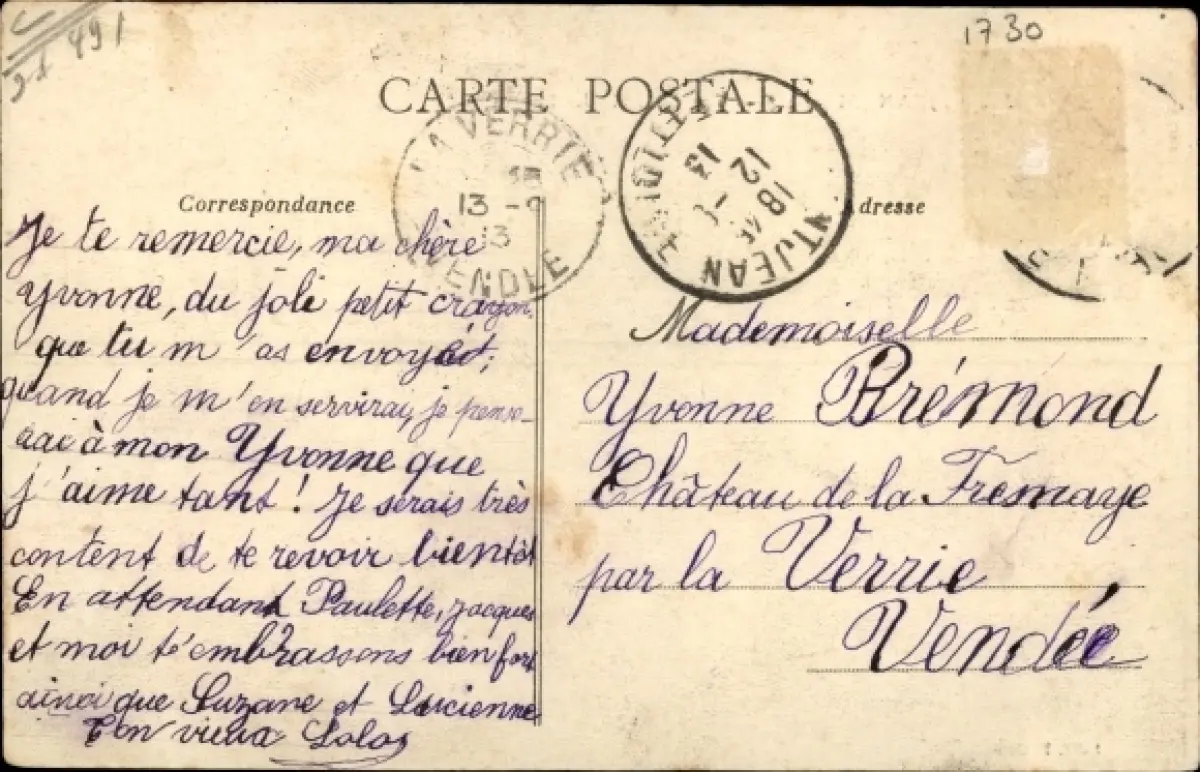 21 491
1730
CARTE POSTALE
LA VERRIE
13 -9
13
VENDÉE
18 45
12 -
13
NT JEAN
Correspondance
Adresse
Je te remercie, ma chère
Yvonne, du joli petit crayon
que tu m'as envoyé,
quand je m'en servirai, je pense-
rai à mon Yvonne que
j'aime tant ! Je serais très
content de te revoir bientôt
En attendant Paulette, Jacques
et moi t'embrassons bien fort
ainsi que Suzane et Lucienne
Ton vieux Lolo
Mademoiselle
Yvonne Brémond
Château de la Fremaye
par la Verrie
Vendée